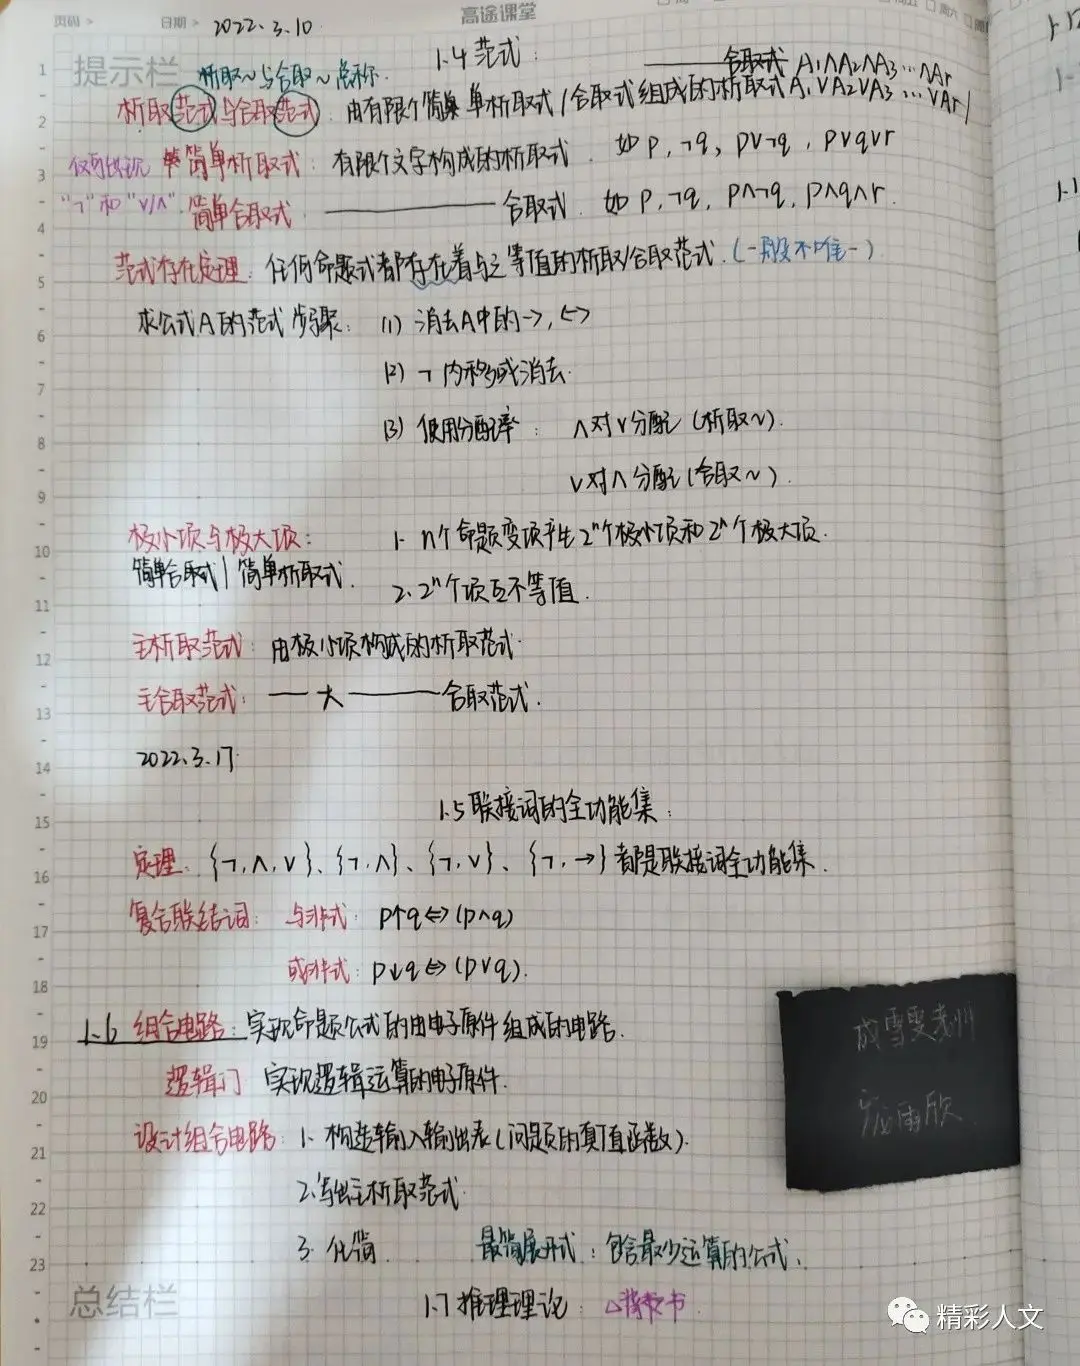 页码 >
日期 >
2022.3.10
高途课堂
提示栏
1.4 范式:
析取~与合取~总称.
———— 合取式 A₁∧A₂∧A₃…∧Ar
析取范式与合取范式: 由有限个简单析取式/合取式组成的析取式A₁∨A₂∨A₃…∨Ar/
仅可出现 简单析取式: 有限个文字构成的析取式. 如 p, ¬q, p∨¬q, p∨q∨r
"¬"和"∨/∧". 简单合取式 ———— 合取式. 如 p, ¬q, p∧¬q, p∧q∧r.
范式存在定理: 任何命题式者都存在着与之等值的析取/合取范式.(一般不唯一)
求公式A的范式步骤: (1) 消去A中的→, ↔
(2) ¬ 内移或消去.
(3) 使用分配率: ∧对∨分配(析取~).
∨对∧分配(合取~).
极小项与极大项: 1. n个命题变项产生2ⁿ个极小项和2ⁿ个极大项.
简单合取式 | 简单析取式. 2. 2ⁿ个项互不等值.
主析取范式: 由极小项构成的析取范式.
主合取范式: —— 大 ———— 合取范式.
2022.3.17.
1.5 联接词的全功能集:
定理: {¬,∧,∨}、{¬,∧}、{¬,∨}、{¬,→}都是联接词全功能集.
复合联结词: 与非式: p↑q⇔(p∧q)
或非式: p↓q⇔(p∨q).
1.6 组合电路: 实现命题公式的由电子原件组成的电路.
逻辑门 实现逻辑运算的电子原件.
设计组合电路: 1. 构造输入输出表(问题的真值函数).
2.写出主析取范式.
3. 化简. 最简展开式: 包含最少运算的公式.
1.7 推理理论: △
总结栏
1
2
3
4
5
6
7
8
9
10
11
12
13
14
15
16
17
18
19
20
21
22
23
精彩人文